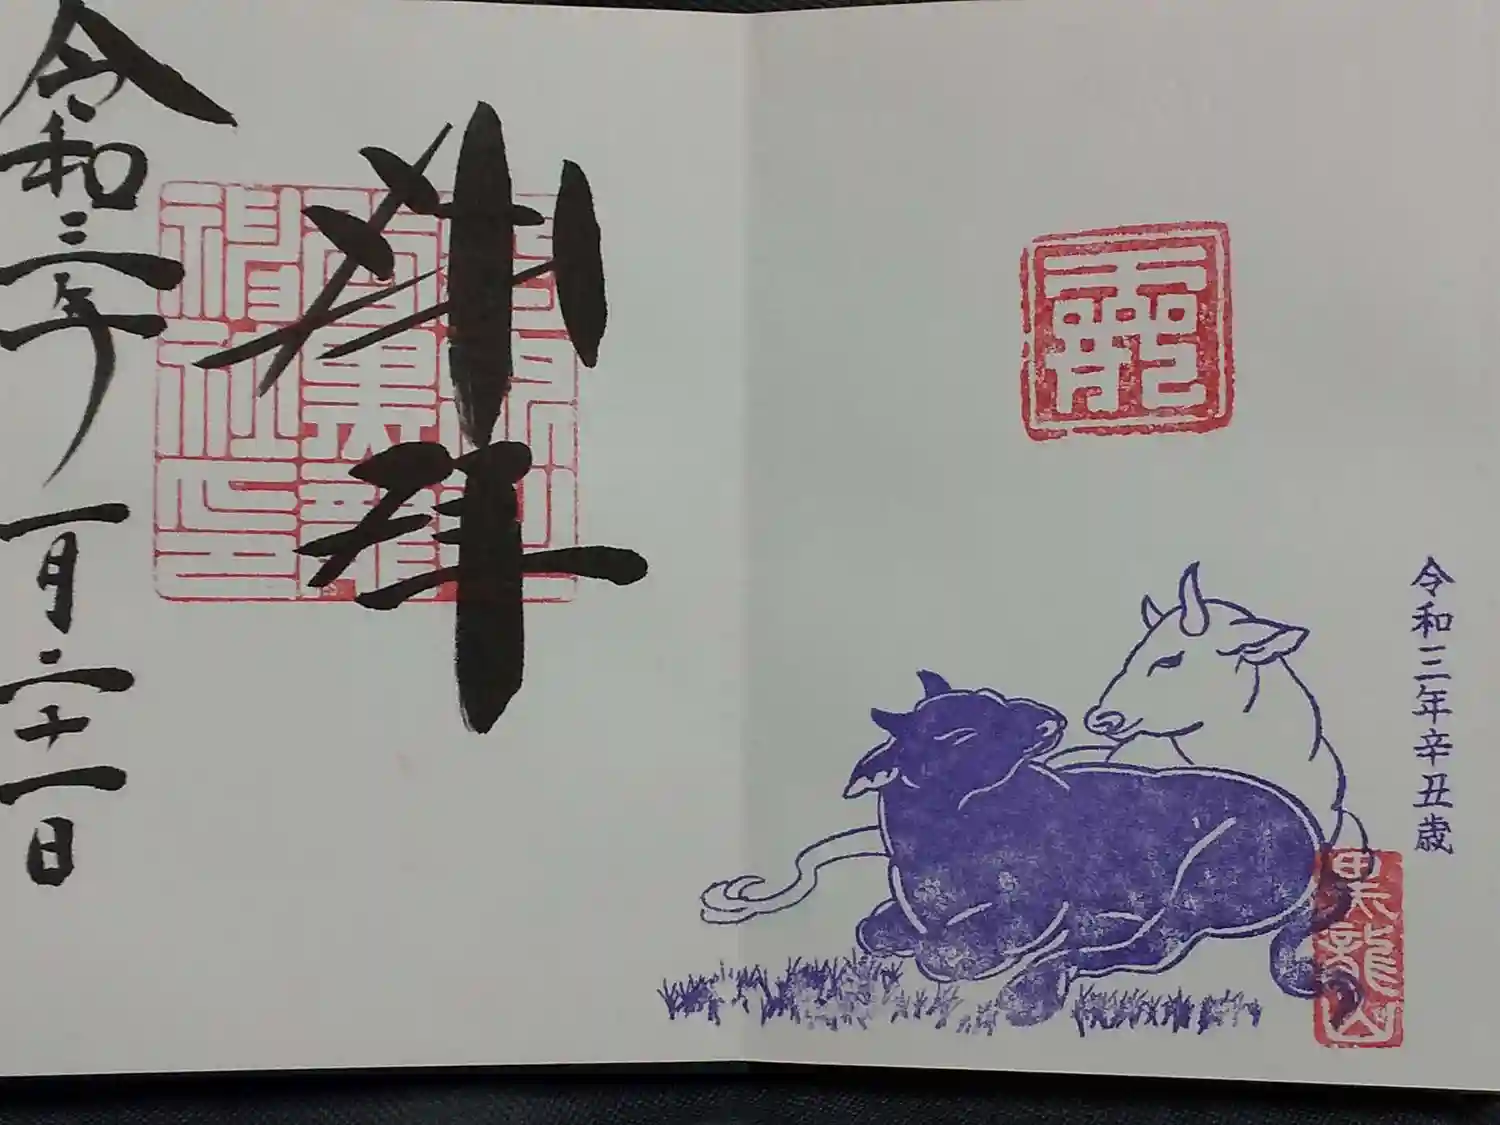 令和三年辛丑歳
龗
奉拝
令和三年一月二十一日